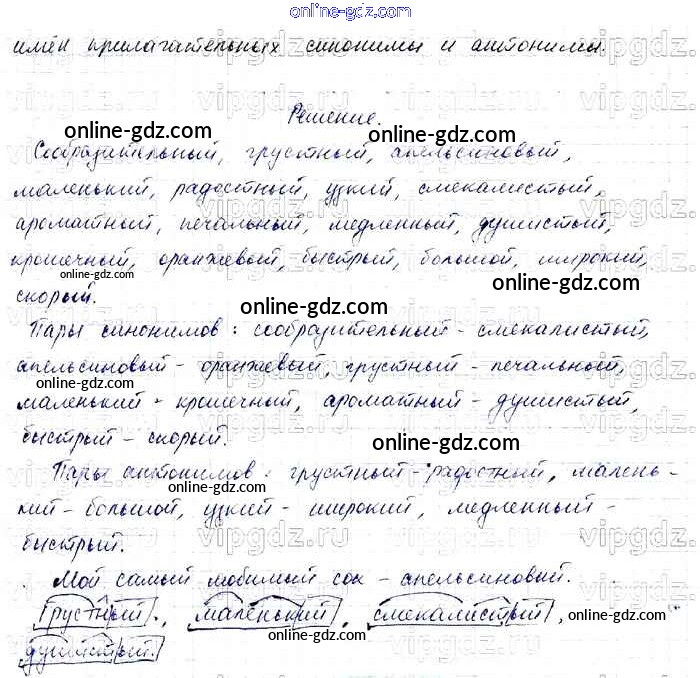 online-gdz.com
имён прилагательных синонимы и антонимы.
Решение.
online-gdz.com online-gdz.com
Сообразительный, грустный, апельсиновый,
маленький, радостный, узкий, смекалистый,
online-gdz.com
ароматный, печальный, медленный, душистый,
крошечный, оранжевый, быстрый, большой, широкий,
online-gdz.com online-gdz.com
скорый.
online-gdz.com
Пары синонимов: сообразительный - смекалистый,
апельсиновый - оранжевый, грустный - печальный,
online-gdz.com online-gdz.com
маленький - крошечный, ароматный - душистый,
быстрый - скорый.
online-gdz.com
Пары антонимов: грустный - радостный, малень-
online-gdz.com
кий - большой, узкий - широкий, медленный -
online-gdz.com
быстрый.
Мой самый любимый сок - апельсиновый.
online-gdz.com
Грустный, маленький, смекалистый,
online-gdz.com online-gdz.com
душистый.